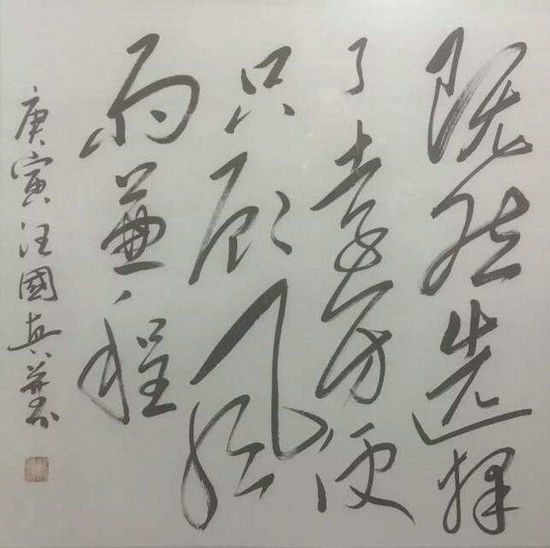 既然选择
了遠方便
只顾风
雨兼程
庚寅汪國真